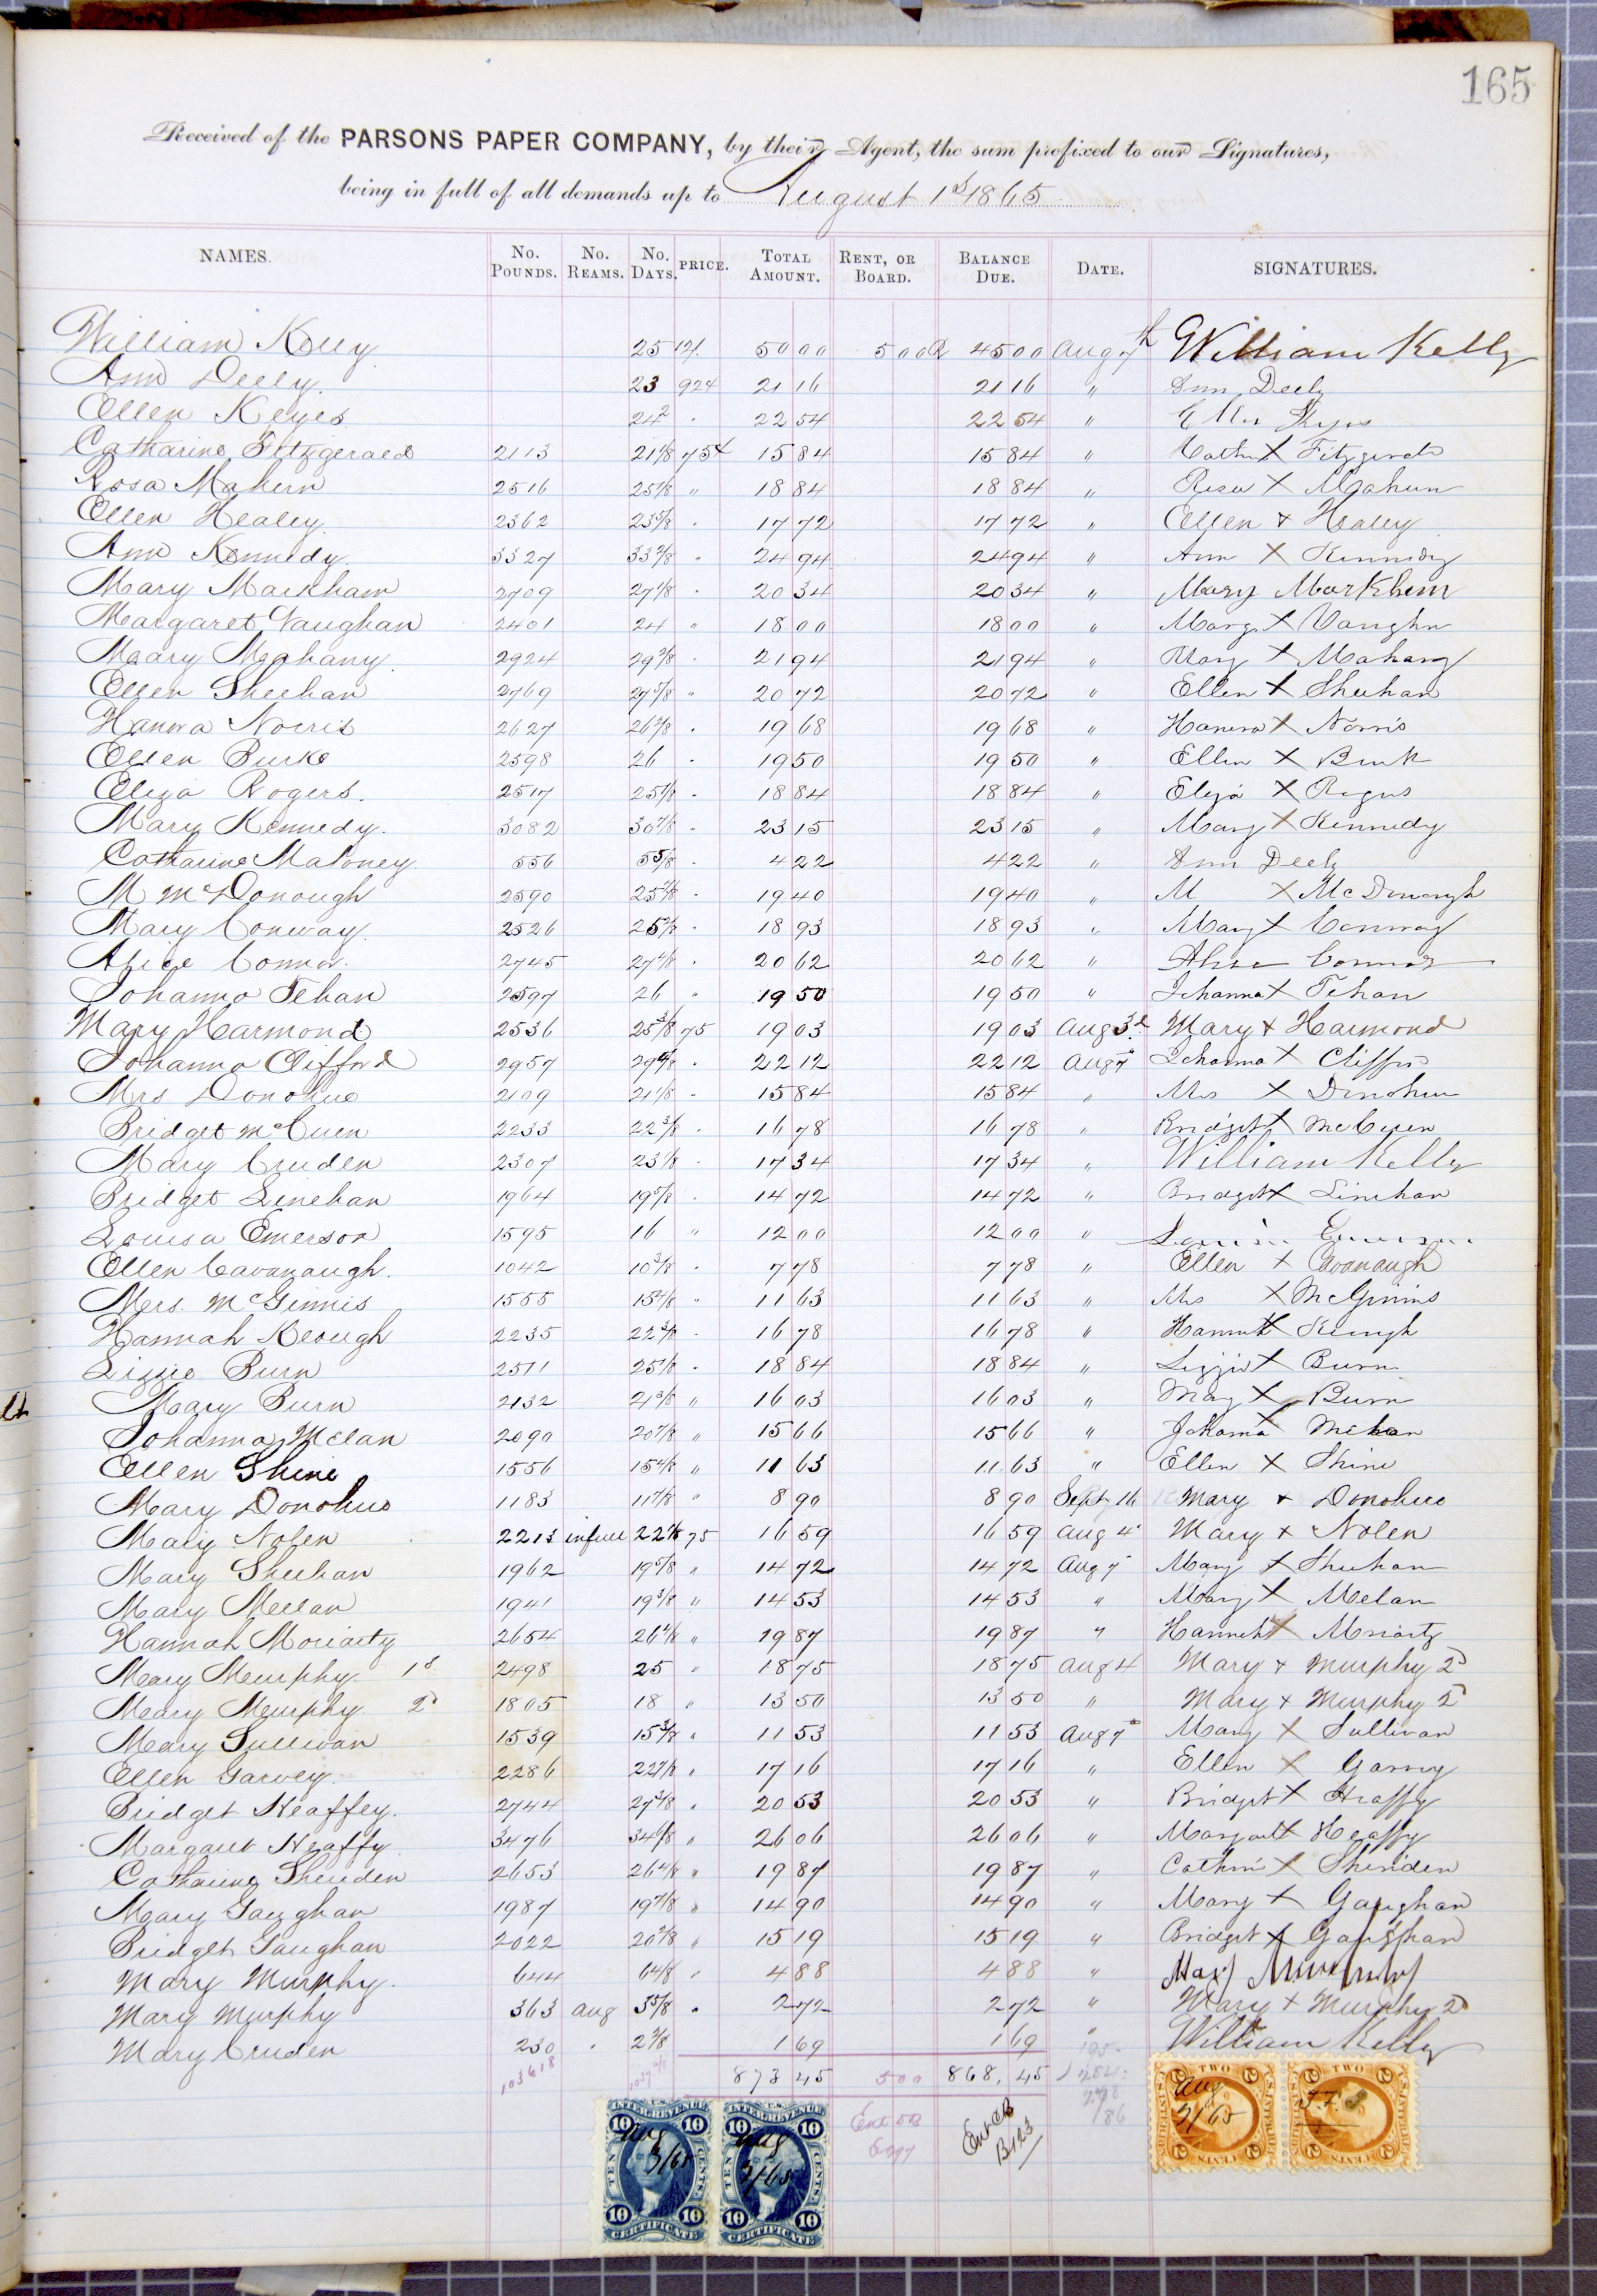 165
Received of the PARSONS PAPER COMPANY, by their Agent, the sum prefixed to our Signatures,
being in full of all demands up to August 1st 1865
NAMES. No. POUNDS. No. REAMS. No. DAYS. PRICE. TOTAL AMOUNT. RENT, OR BOARD. BALANCE DUE. DATE. SIGNATURES.
William Kelly 25 12/. 50 00 5 00 45 00 Aug 7th William Kelly
Ann Deely 23 92¢ 21 16 21 16 " Ann Deely
Ellen Keyes 24 2 " 22 54 22 54 " Ellen Keyes
Catharine Fitzgerald 2113 21 1/8 75¢ 15 84 15 84 " Cath X Fitzgerald
Rosa Mahern 2516 25 1/8 " 18 84 18 84 " Rosa X Mahern
Ellen Healey 2362 23 5/8 " 17 72 17 72 " Ellen X Healey
Ann Kennedy 3327 33 2/8 " 24 94 24 94 " Ann X Kennedy
Mary Markham 2709 27 1/8 " 20 34 20 34 " Mary Markhem
Margaret Vaughan 2401 24 " 18 00 18 00 " Marg X Vaughn
Mary Mahany 2924 29 2/8 " 21 94 21 94 " Mary X Mahany
Ellen Sheehan 2769 27 5/8 " 20 72 20 72 " Ellen X Sheehan
Hanora Norris 2627 26 2/8 " 19 68 19 68 " Hanora X Norris
Ellen Burke 2598 26 " 19 50 19 50 " Ellen X Burk
Eliza Rogers 2517 25 1/8 " 18 84 18 84 " Eliza X Rogers
Mary Kennedy 3082 30 7/8 " 23 15 23 15 " Mary X Kennedy
Catharine Maloney 556 5 5/8 " 4 22 4 22 " Ann Deely
M McDonough 2590 25 7/8 " 19 40 19 40 " M X McDonough
Mary Conway 2526 25 2/8 " 18 93 18 93 " Mary X Conway
Alice Connor 2745 27 4/8 " 20 62 20 62 " Alice Connor
Johanna Tehan 2597 26 " 19 50 19 50 " Johanna X Tehan
Mary Harmond 2536 25 3/8 75 19 03 19 03 Aug 3d Mary X Harmond
Johanna Clifford 2957 29 4/8 " 22 12 22 12 Aug 7th Johanna X Clifford
Mrs Donohue 2109 21 1/8 " 15 84 15 84 " Mrs X Donohue
Bridget McCuen 2233 22 3/8 " 16 78 16 78 " Bridget X McCuen
Mary Cruden 2307 23 1/8 " 17 34 17 34 " William Kelly
Bridget Linehan 1964 19 5/8 " 14 72 14 72 " Bridget X Linehan
Louisa Emerson 1595 16 " 12 00 12 00 " Louisa Emerson
Ellen Cavanaugh 1042 10 3/8 " 7 78 7 78 " Ellen X Cavanaugh
Mrs. McGinnis 1555 15 4/8 " 11 63 11 63 " Mrs X McGinnis
Hannah Keough 2235 22 3/8 " 16 78 16 78 " Hannah X Keough
Lizzie Burn 2511 25 1/8 " 18 84 18 84 " Lizzie X Burn
Mary Burn 2132 21 3/8 " 16 03 16 03 " Mary X Burn
Johanna Melan 2090 20 7/8 " 15 66 15 66 " Johanna X Melan
Ellen Shine 1556 15 4/8 " 11 63 11 63 " Ellen X Shine
Mary Donohue 1183 11 7/8 " 8 90 8 90 Sept 16 Mary X Donohue
Mary Nolen 2213 in full 22 1/8 75 16 59 16 59 Aug 4 Mary X Nolen
Mary Sheehan 1962 19 5/8 " 14 72 14 72 Aug 7 Mary X Sheehan
Mary Mellan 1941 19 3/8 " 14 53 14 53 " Mary X Melan
Hannah Moriarty 2654 26 4/8 " 19 87 19 87 " Hannah X Moriarty
Mary Murphy 1st 2498 25 " 18 75 18 75 Aug 4 Mary X Murphy 2d
Mary Murphy 2d 1805 18 " 13 50 13 50 " Mary X Murphy 2d
Mary Sullivan 1539 15 3/8 " 11 53 11 53 Aug 7th Mary X Sullivan
Ellen Garvey 2286 22 7/8 " 17 16 17 16 " Ellen X Garvey
Bridget Heaffey 2744 27 3/8 " 20 53 20 53 " Bridget X Heaffy
Margaret Heaffy 3476 34 6/8 " 26 06 26 06 " Margaret X Heaffy
Catharine Sheriden 2653 26 4/8 " 19 87 19 87 " Cathrin X Sheriden
Mary Gaughan 1987 19 7/8 " 14 90 14 90 " Mary X Gaughan
Bridget Gaughan 2022 20 2/8 " 15 19 15 19 " Bridget X Gaughan
Mary Murphy 644 6 4/8 " 4 88 4 88 " Mary Murphy
Mary Murphy 363 Aug 3 5/8 " 2 72 2 72 " Mary X Murphy 2d
Mary Cruden 230 " 2 2/8 1 69 1 69 " William Kelly
103618 873 45 5 00 868.45
Ent CB
B123
U.S. INTER. REVENUE 10 TEN CENTS CERTIFICATE
Aug 3/65
U.S. INTER. REVENUE 10 TEN CENTS CERTIFICATE
Aug 3/65
TWO 2 CENTS
Aug 3/65
TWO 2 CENTS